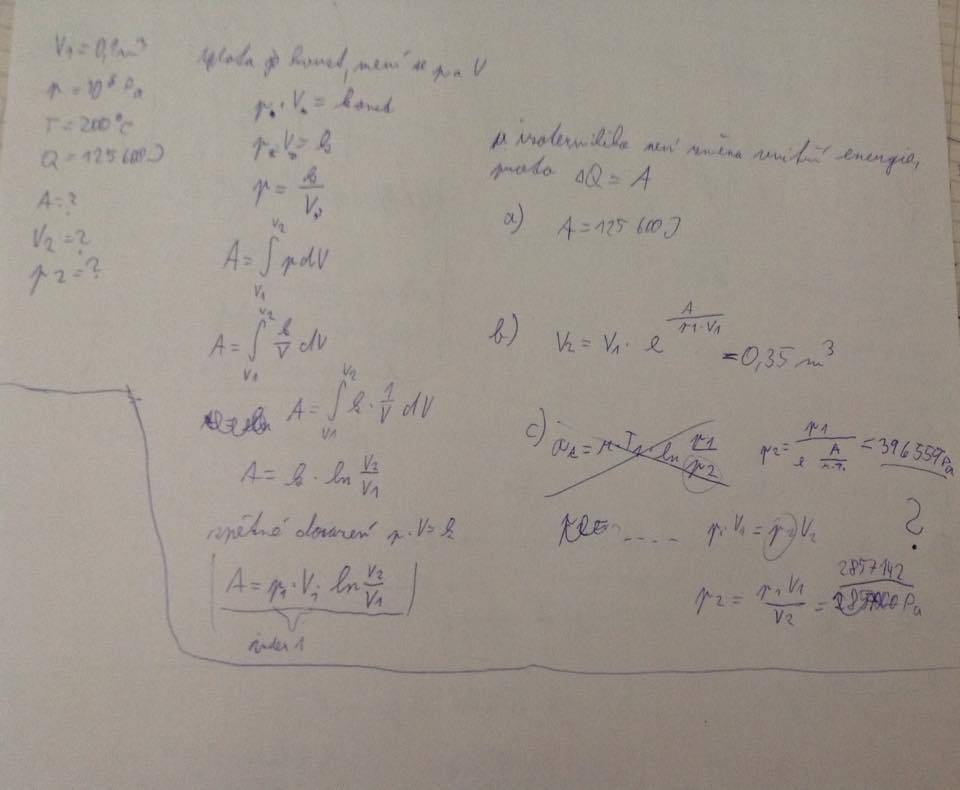 V1 = 0,1 m³
p = 10⁵ Pa
T = 200°C
Q = 125600J
A = ?
V2 = ?
p2 = ?
teplota je konst, mění se p a V
p · V = konst
p · V = k
p = k/V
A = ∫_{V1}^{V2} p dV
A = ∫_{V1}^{V2} k/V dV
A = ∫_{V1}^{V2} k · 1/V dV
A = k · ln V2/V1
zpětné dosazení p · V = k
A = p1 · V1 ln V2/V1
index 1
u není změna vnitřní energie,
proto ΔQ = A
a) A = 125 600J
b) V2 = V1 · e^{A/p1·V1} = 0,35 m³
c) ln p1/p2
p2 = p1/e^{A/n.T.} = 396559Pa
.... p1 V1 = p2 V2
?
p2 = p1 V1/V2 = 2857142 Pa